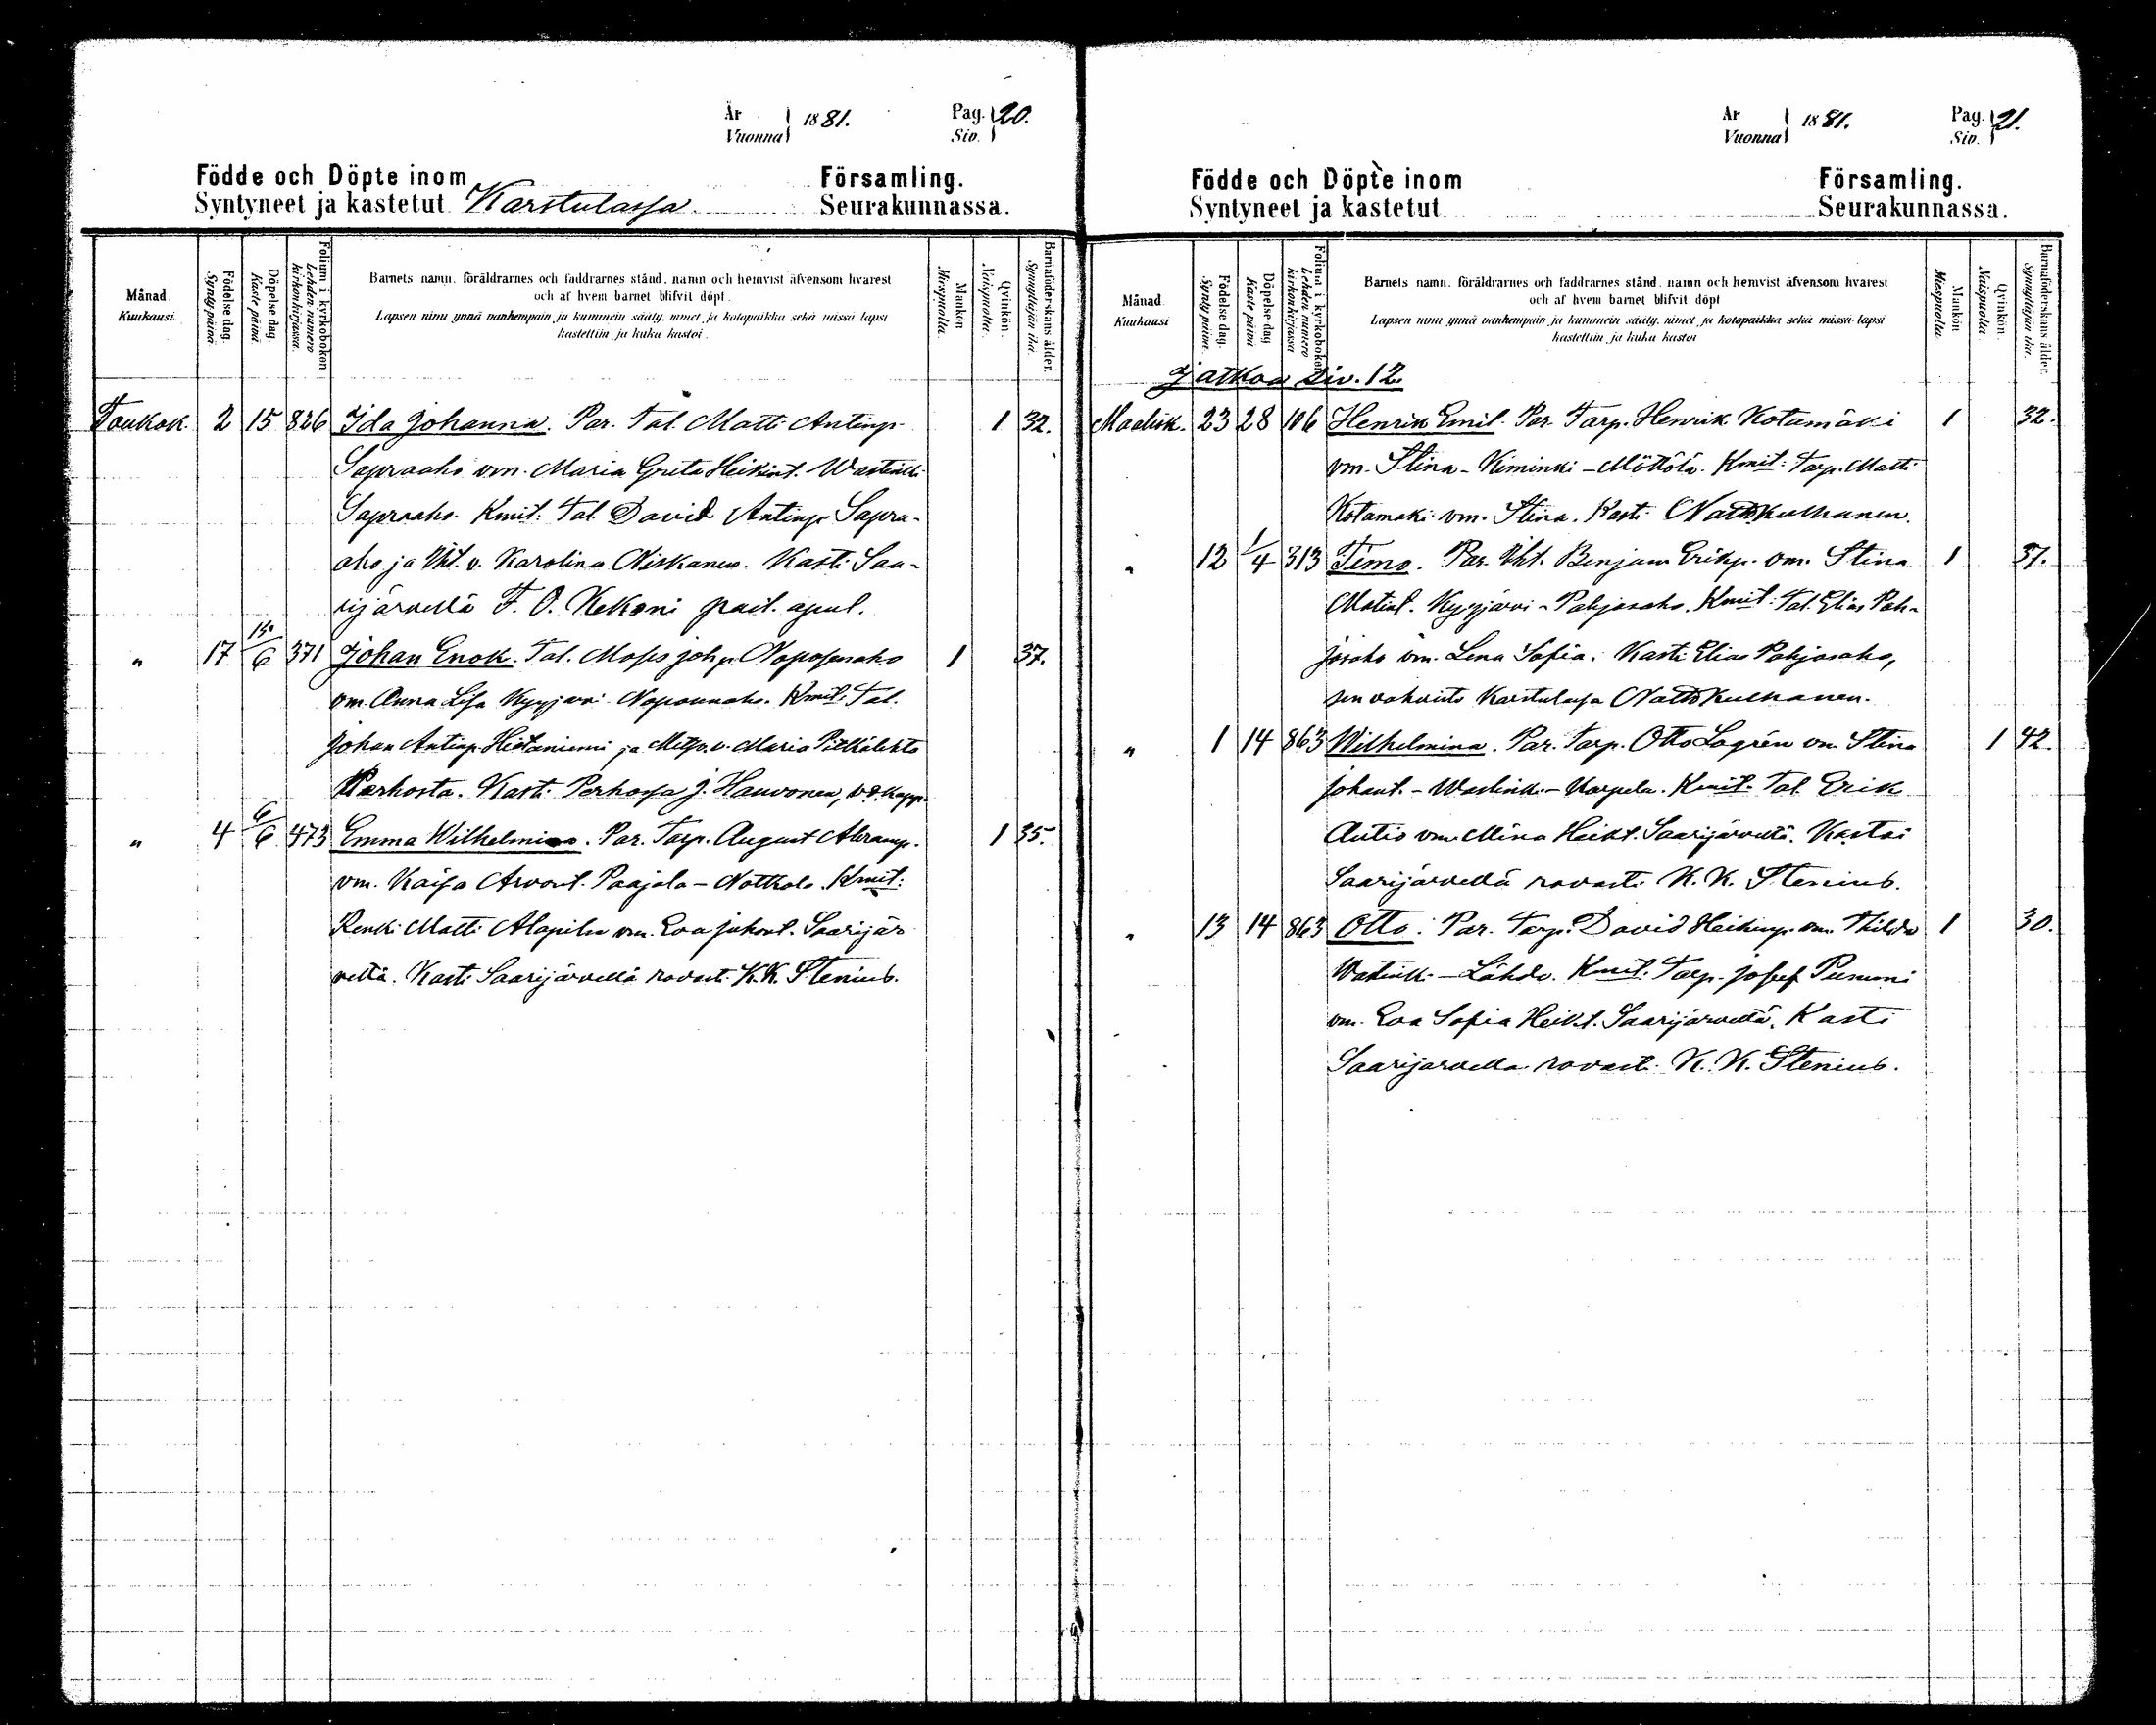 År Vuonna 1881. Pag. Siv. 20.
Födde och Döpte inom Församling.
Syntyneet ja kastetut Karstulassa. Seurakunnassa.
Månad Kuukausi
Födelse dag. Synty päivä.
Döpelse dag. Kaste päivä.
Folium i kyrkoboken Lehden numero kirkonkirjassa.
Barnets namn, föräldrarnes och faddrarnes stånd, namn och hemvist äfvensom hvarest
och af hvem barnet blifvit döpt.
Lapsen nimi ynnä vanhempain ja kummein sääty, nimet ja kotopaikka sekä missä lapsi
kastettiin ja kuka kastoi.
Mankön Miespuolia.
Qvinkön. Naispuolia.
Barnaföderskans ålder. Synnyttäjän ikä.
Toukok. 2 15 826 Ida Johanna. Par. Tal. Matti Antinp. 1 32.
Sapraaho vm. Maria Greta Heikint. Wastinki
Sapraaho. Kmit: Tal. David Antinp. Sapra-
aho ja Iht. v. Karolina Niskanen. Kasti Saa-
rijärvellä F. O. Kekoni pait. apul.
" 17 15/6 371 Johan Enok. Tal. Moses Joh.p. Noposenaho 1 37.
vm. Anna Lisa Kyyjärvi Noposenaho. Kmit: Tal.
Johan Antinp. Hietaniemi ja Metsv. v. Maria Pitkälehto
Perhosta. Kasti Perhossa J. Hauvonen, v.t. kapp.
" 4 6/6 473 Emma Wilhelmina. Par. Torp. August Abramp. 1 35.
vm. Kaisa Arvont. Paajala - Nottkola. Kmit:
Renki Matti Alapiha vm. Eva Juhont. Saarijär
veltä. Kasti Saarijärvellä rovasti K. K. Stenius.
År Vuonna 1881. Pag. Siv. 21.
Födde och Döpte inom Församling.
Syntyneet ja kastetut Seurakunnassa.
Månad Kuukausi
Födelse dag. Synty päivä.
Döpelse dag Kaste päivä
Folium i kyrkoboken Lehden numero kirkonkirjassa
Barnets namn, föräldrarnes och faddrarnes stånd, namn och hemvist äfvensom hvarest
och af hvem barnet blifvit döpt
Lapsen nimi ynnä vanhempain ja kummein sääty, nimet ja kotopaikka sekä missä lapsi
kastettiin ja kuka kastoi
Mankön Miespuolia.
Qvinkön. Naispuolia
Barnaföderskans ålder. Synnyttäjän ikä.
Jatkoa Siv. 12.
Maalisk. 23 28 106 Henrik Emil. Par. Torp. Henrik Kotamäki 1 32.
vm. Stina - Kiminki - Möttölä. Kmit: Torp. Matti
Kotamäki vm. Stina. Kasti Natt Kulhanen.
" 12 1/4 313 Timo. Par. Iht. Benjam Erikp. vm. Stina 1 37.
Matint. Kyyjärvi - Pohjosaho. Kmit: Tal. Elias Poh-
josaho vm. Lena Sofia. Kasti Elias Pohjosaho,
sen vahvisti Karstulassa Natt Kulhanen.
" 1 14 863 Wilhelmina. Par. Torp. Otto Lagrén vm. Stina 1 42.
Johant. - Wastinki - Karpela. Kmit. Tal. Erik
Autio vm. Mina Heikt. Saarijärveltä. Kastoi
Saarijärvellä rovasti K. K. Stenius.
" 13 14 863 Otto. Par. Torp. David Heikinp. vm. Thilda 1 30.
Wastinki - Lähde. Kmit. Torp. Josef
vm. Eva Sofia Heikt. Saarijärveltä. Kasti
Saarijärvellä rovasti K. K. Stenius.